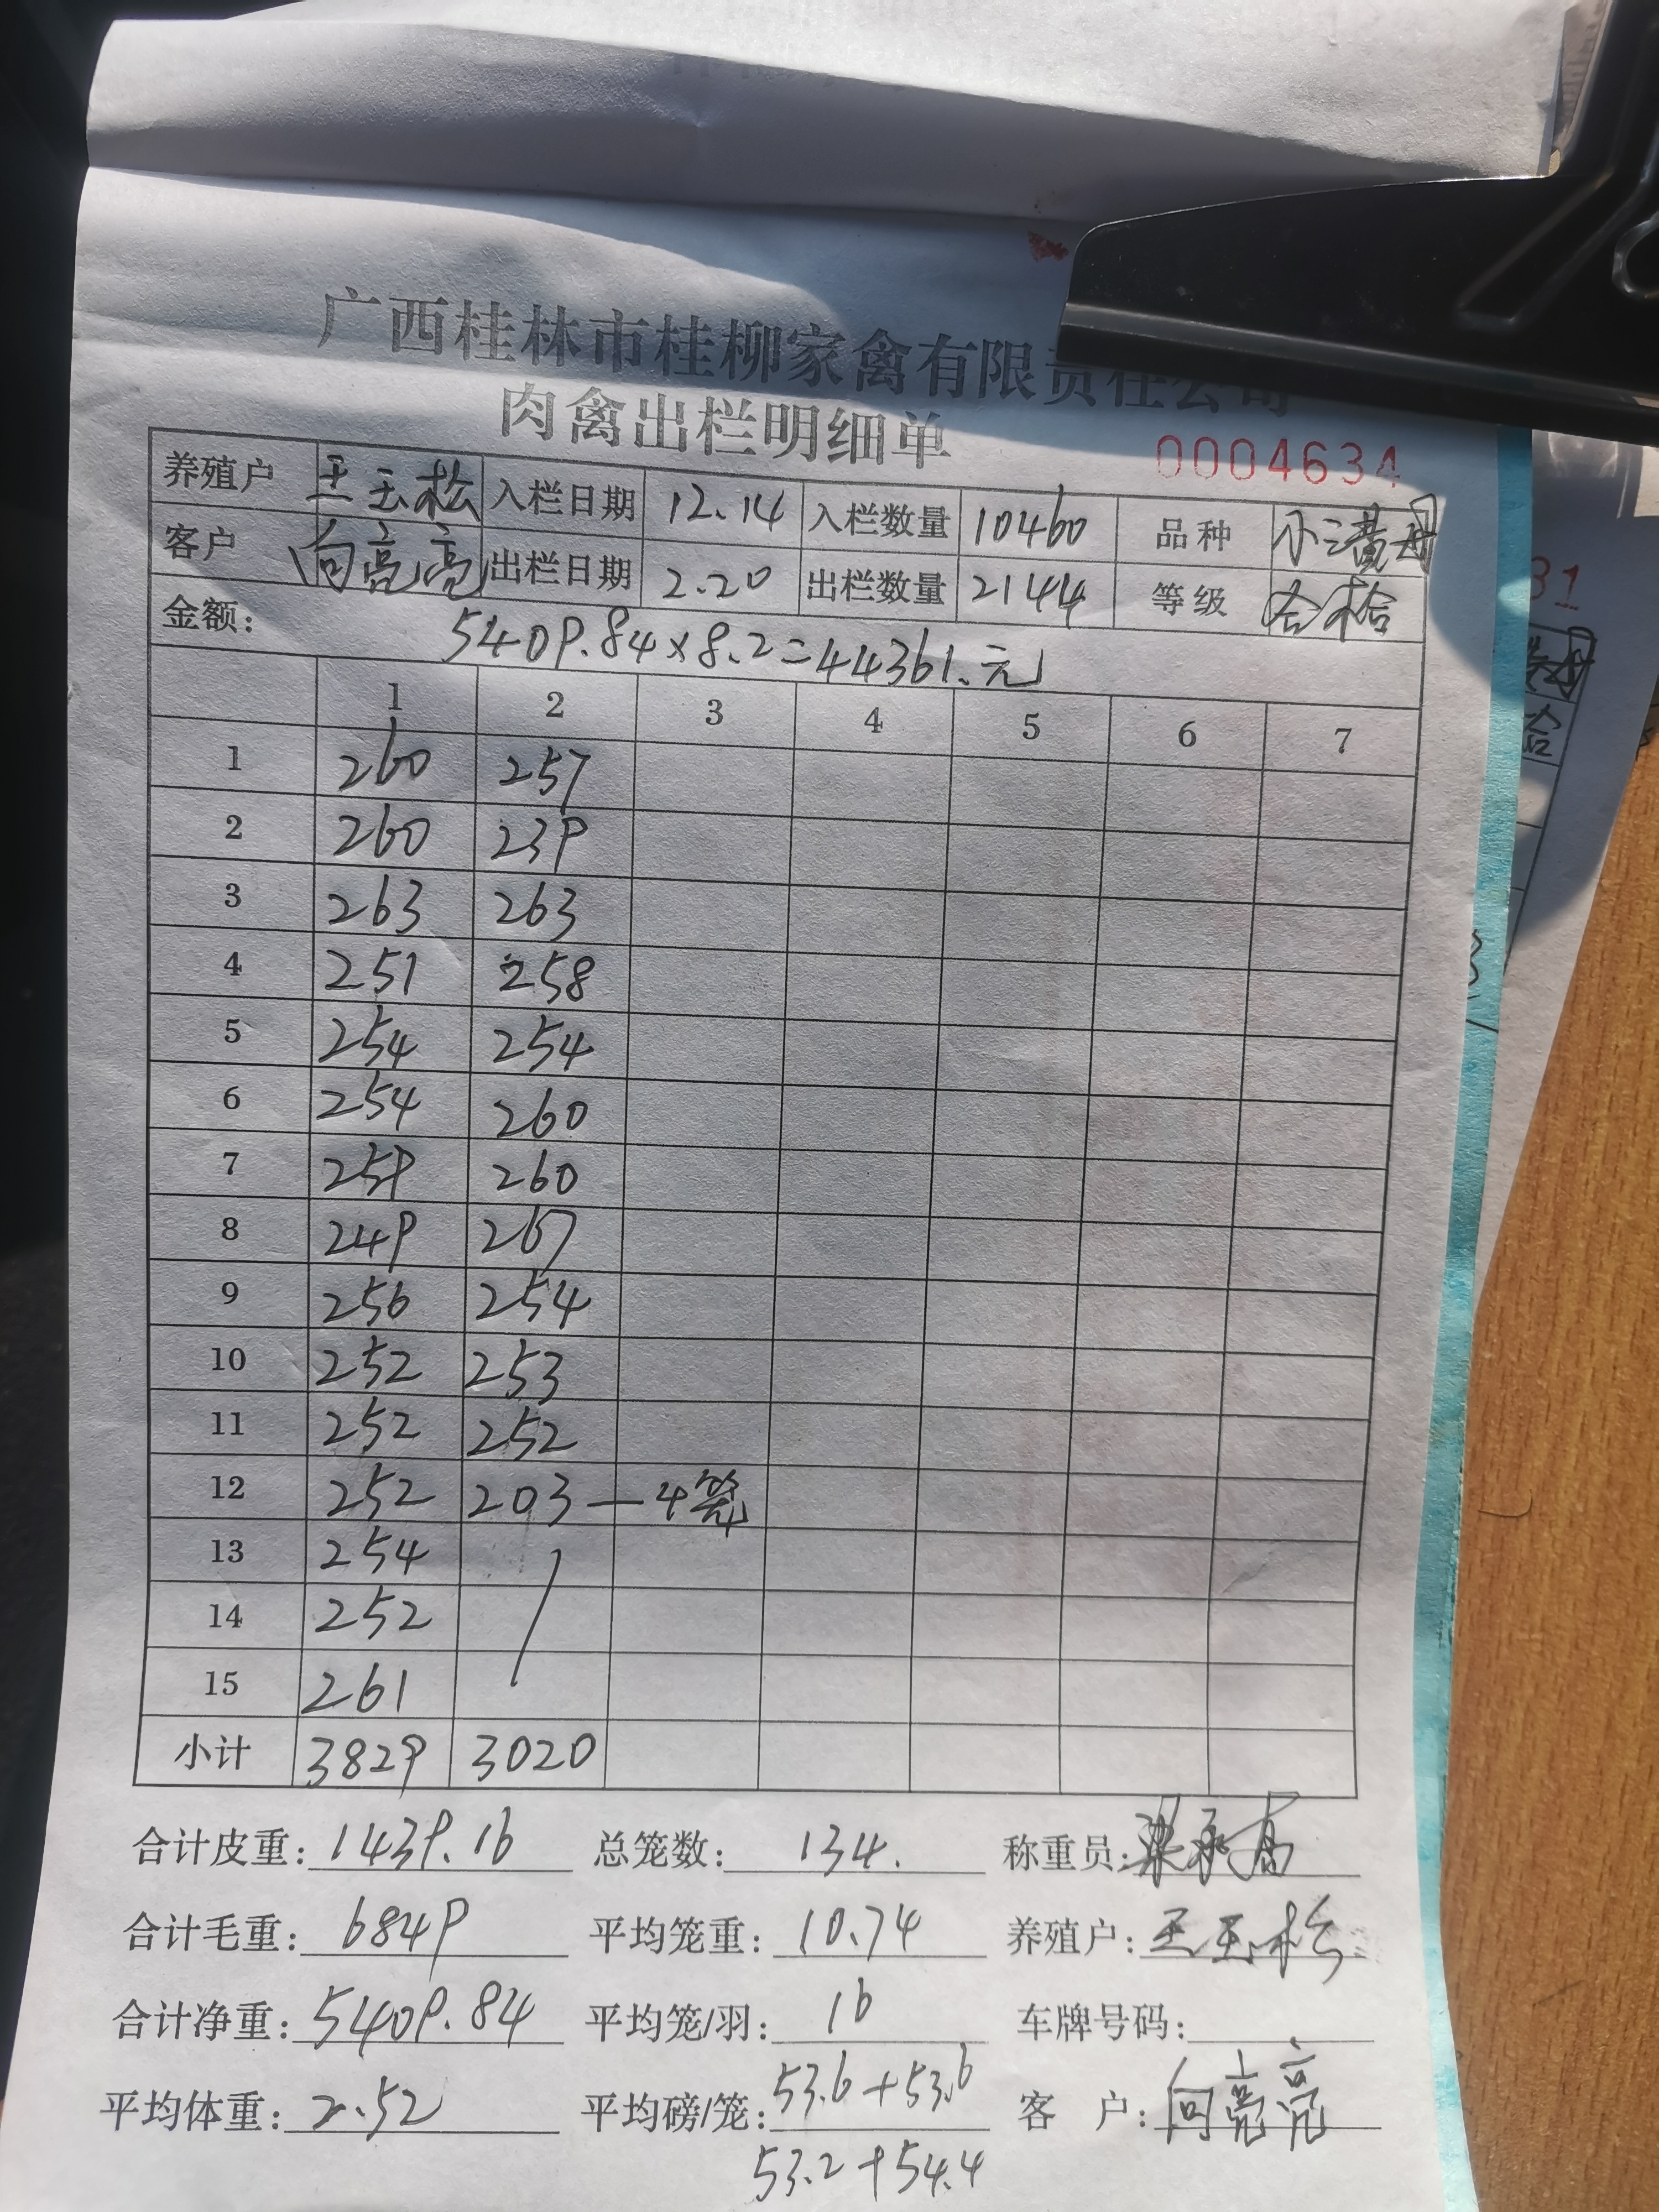 广西桂林市桂柳家禽有限责任公司
肉禽出栏明细单
0004634
养殖户 王玉松 入栏日期 12.14 入栏数量 10460 品种
客户 向亮亮 出栏日期 2.20 出栏数量 2144 等级 合格
金额: 5409.84×8.2=44361.元
1 2 3 4 5 6 7
1 260 257
2 260 239
3 263 263
4 251 258
5 254 254
6 254 260
7 259 260
8 249 267
9 256 254
10 252 253
11 252 252
12 252 203 — 4笼
13 254
14 252
15 261
小计 3829 3020
合计皮重: 1439.16 总笼数: 134. 称重员:
合计毛重: 6849 平均笼重: 10.74 养殖户: 王玉松
合计净重: 5409.84 平均笼/羽: 16 车牌号码:
平均体重: 2.52 平均磅/笼: 53.6+53.6 客 户: 向亮亮
53.2+54.4
31